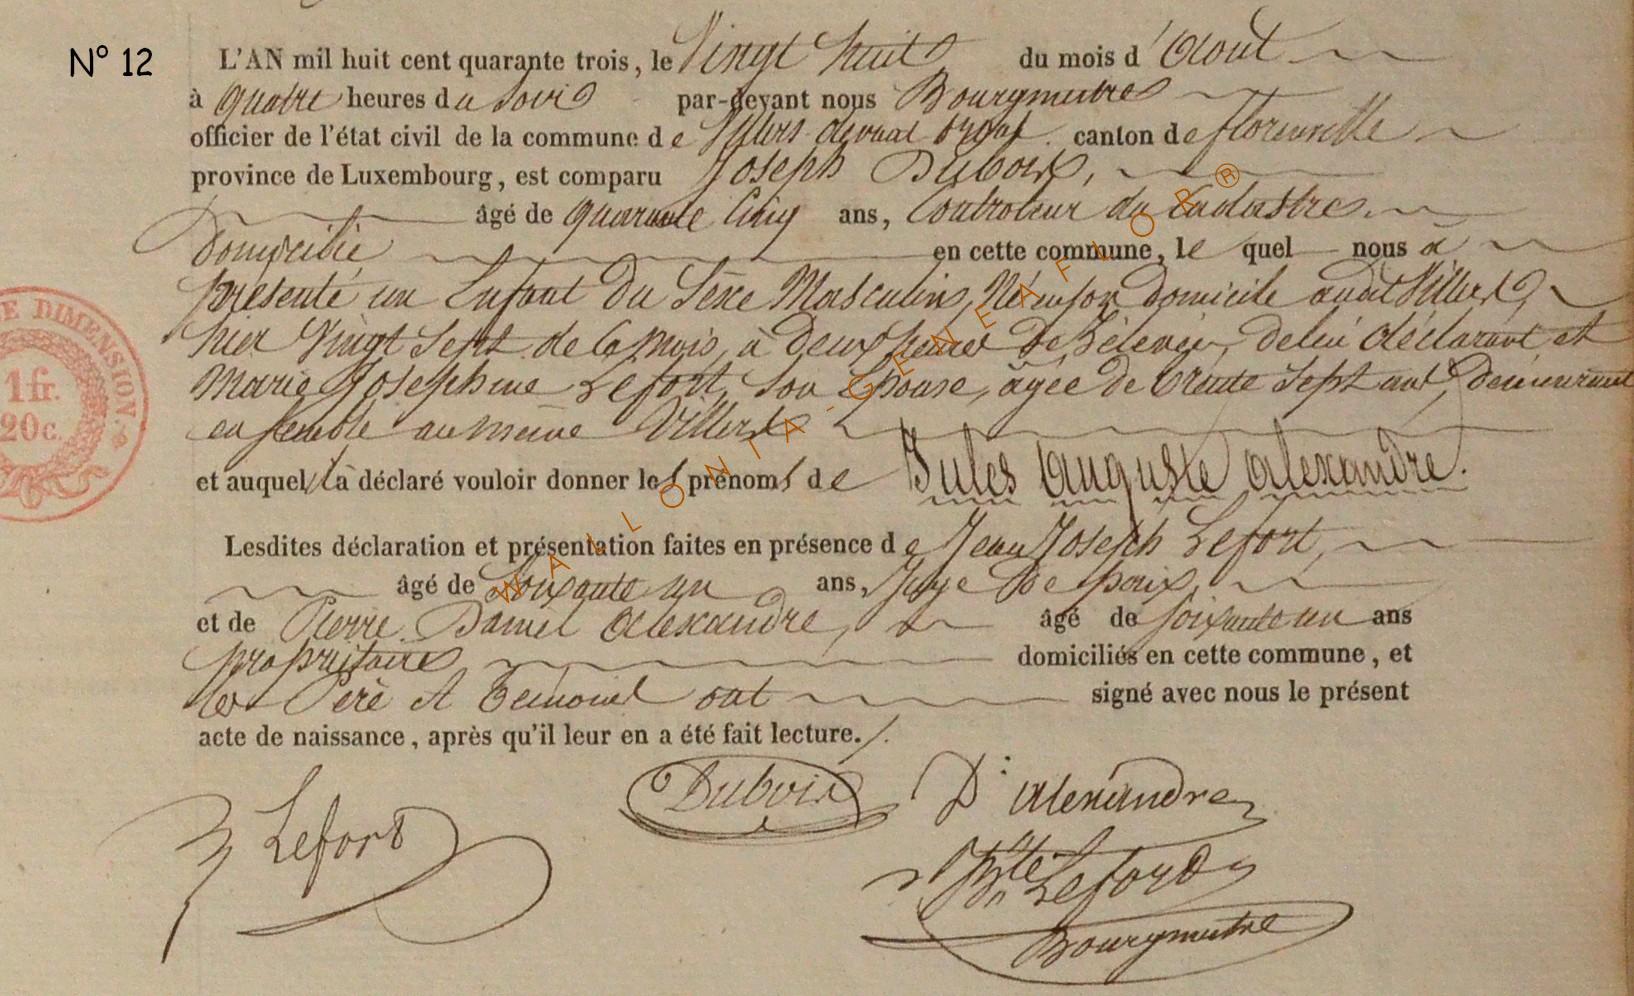 N° 12
L'AN mil huit cent quarante trois, le Vingt huit du mois d'Aout
à quatre heures du Soir par-devant nous Bourgmestre
officier de l'état civil de la commune de Villers devant orval canton de florenville
province de Luxembourg, est comparu Joseph Dubois,
âgé de quarante Cinq ans, Controleur du Cadastre
Domicilié en cette commune, lequel nous à
présenté un Enfant Du Sexe Masculin, Né en son domicile audit Villers,
hier Vingt Sept de Ce Mois, à Deux heures De rélevée, de lui déclarant et
Marie Josephine Lefort, Son Epouse, âgée de trente Sept ans, demeurant
ensemble au même Villers
et auquel il a déclaré vouloir donner les prénoms de Jules Auguste Alexandre.
Lesdites déclaration et présentation faites en présence de Jean Joseph Lefort,
âgé de Soixante un ans, Juge De paix,
et de Pierre Daniel Alexandre, âgé de soixante un ans
propriétaire domiciliés en cette commune, et
les Père et Temoins ont signé avec nous le présent
acte de naissance, après qu'il leur en a été fait lecture./.
Lefort Dubois D. alexandre
Bte Lefort
Bourgmestre
E DIMENSION.
1 fr.
20 c.
WALLONIA-GENEAFLOR®